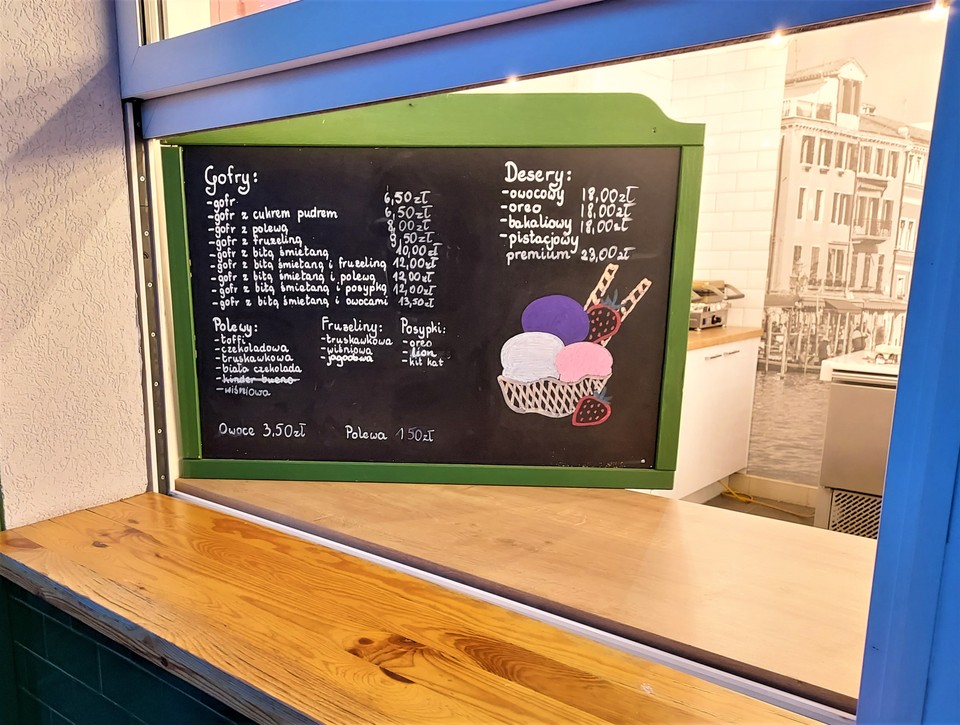 Gofry:
-gofr 6,50zł
-gofr z cukrem pudrem 6,50zł
-gofr z polewą 8,00zł
-gofr z frużeliną 9,50zł
-gofr z bitą śmietaną 10,00zł
-gofr z bitą śmietaną i frużeliną 12,00zł
-gofr z bitą śmietaną i polewą 12,00zł
-gofr z bitą śmietaną i posypką 12,00zł
-gofr z bitą śmietaną i owocami 13,50zł
Polewy:
-toffi
-czekoladowa
-truskawkowa
-biała czekolada
-kinder bueno
-wiśniowa
Frużeliny:
-truskawkowa
-wiśniowa
-jagodowa
Posypki:
-oreo
-lion
-kit kat
Owoce 3,50zł
Polewa 1 50zł
Desery:
-owocowy 18,00zł
-oreo 18,00zł
-bakaliowy 18,00zł
-pistacjowy
premium 23,00zł